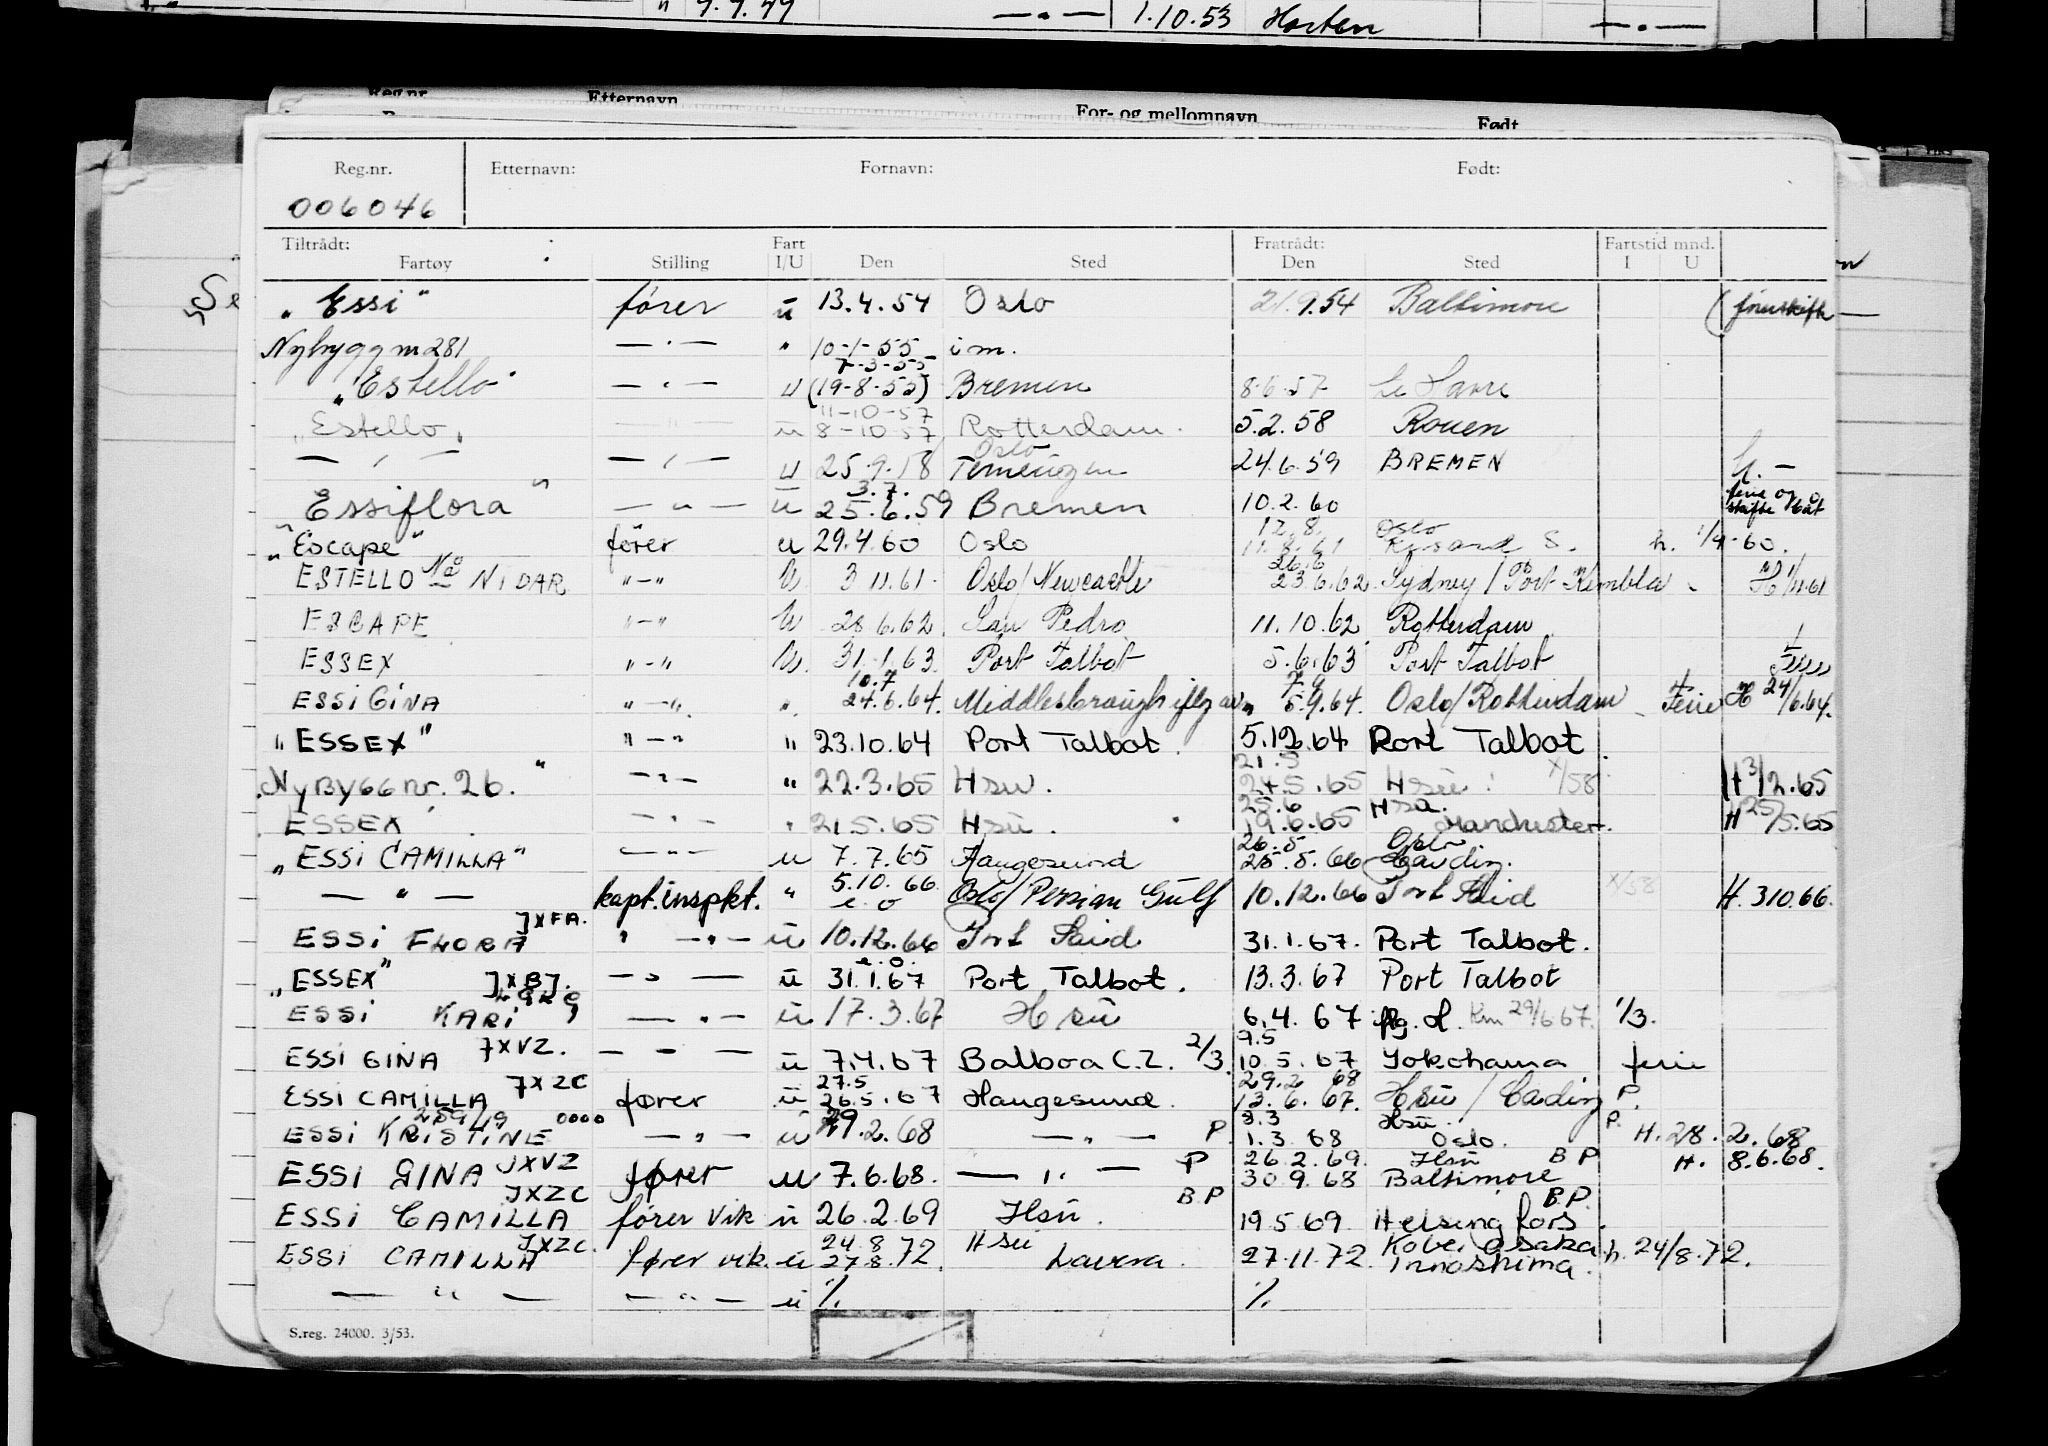 " 9.9.49 — " — 1.10.53 Horten — " —
Reg.nr. Etternavn For- og mellomnavn Født
Reg.nr. Etternavn: Fornavn: Født:
006046
Tiltrådt: Fart Fratrådt: Fartstid mnd.
Fartøy Stilling I/U Den Sted Den Sted I U
"Essi" fører u 13.4.54 Oslo 21.9.54 Baltimore
Nybygg nr 281 — " — " 10-1-55 i m.
7-3-55
"Estello" — " — u (19-8-55) Bremen 8.6.57 Le Havre
11-10-57
"Estello" — " — u 8-10-57 Rotterdam. 5.2.58 Rouen
Oslo
— " — — " — u 25.9.58 24.6.59 BREMEN h. —
3.7. ferie og
Essiflora" — " — u 25.6.59 Bremen 10.2.60 skifte båt
12.8. Oslo
"Escape" fører u 29.4.60 Oslo 11.8.61 Kr.sand S. h. 1/9-60.
26.6
ESTELLO Nå NIDAR "—" U 3 11.61. Oslo/Newcastle 23.6.62 Sydney / Port Kembla H 1/11.61
ESCAPE "—" U 28 6.62. San Pedro 11.10.62 Rotterdam
ESSEX "—" U. 31.1.63. Port Talbot 5.6.63 Port Talbot
10.7 7.9
ESSI GINA "—" " 24.6.64. Middlesbrough 5.9.64. Oslo/Rotterdam Ferie H 24/6.64.
"ESSEX" "—" " 23.10.64 Port Talbot. 5.12.64 Port Talbot
21.5
NyBygg nr. 26. "—" " 22.3.65 Hsu. 24.5.65 Hsu. X/58 H 3/2.65
25.6 Hsa.
ESSEX "—" " 21.5.65 Hsu. 19.6.65 Manchester. H 25/5.65
26.5 Oslo
"ESSI CAMILLA" "—" u 7.7.65 Haugesund 25.5.66
5.10.66
— " — kapt.inspkt. " e.o Oslo/Persian Gulf 10.12.66 Port Said X/58 H. 3 10 66.
JXFA.
ESSI FLORA " — " — u 10.12.66 Port Said 31.1.67. Port Talbot.
e.o.
"ESSEX" JXBJ. — " — u 31.1.67 Port Talbot. 13.3.67 Port Talbot
ESSI KARI — " — u 17.3.67 Hsu 6.4.67 Km 29/6 67. 1/3.
9.5
ESSI GINA JXVZ. — " — u 7.4.67 Balboa C.Z. 2/3. 10.5.67 Yokohama ferie
JXZC 27.5 29.2 68
ESSI CAMILLA fører u 26.5.67 Haugesund. 13.6.67. Hsu / P.
0000 8.3 Hsu. P.
ESSI KRISTINE — " — u 29.2.68 — " — P. 1.3.68 Oslo. H. 28.2.68
JXVZ 26.2.69. Hsu B P
ESSI GINA fører u 7.6.68. — " — P 30.9.68 Baltimore H. 8.6.68.
JXZC B P B.P.
ESSI CAMILLA fører vik u 26.2.69 Hsu. 19.5.69 Helsingfors.
JXZC. 24.8 Hsu Kobe. Osaka
ESSI CAMILLA fører vik. u 27.8.72. Lavera. 27.11.72. Innoshima. h. 24/8.72.
— " — — " — u % %
S.reg. 24000. 3/53.